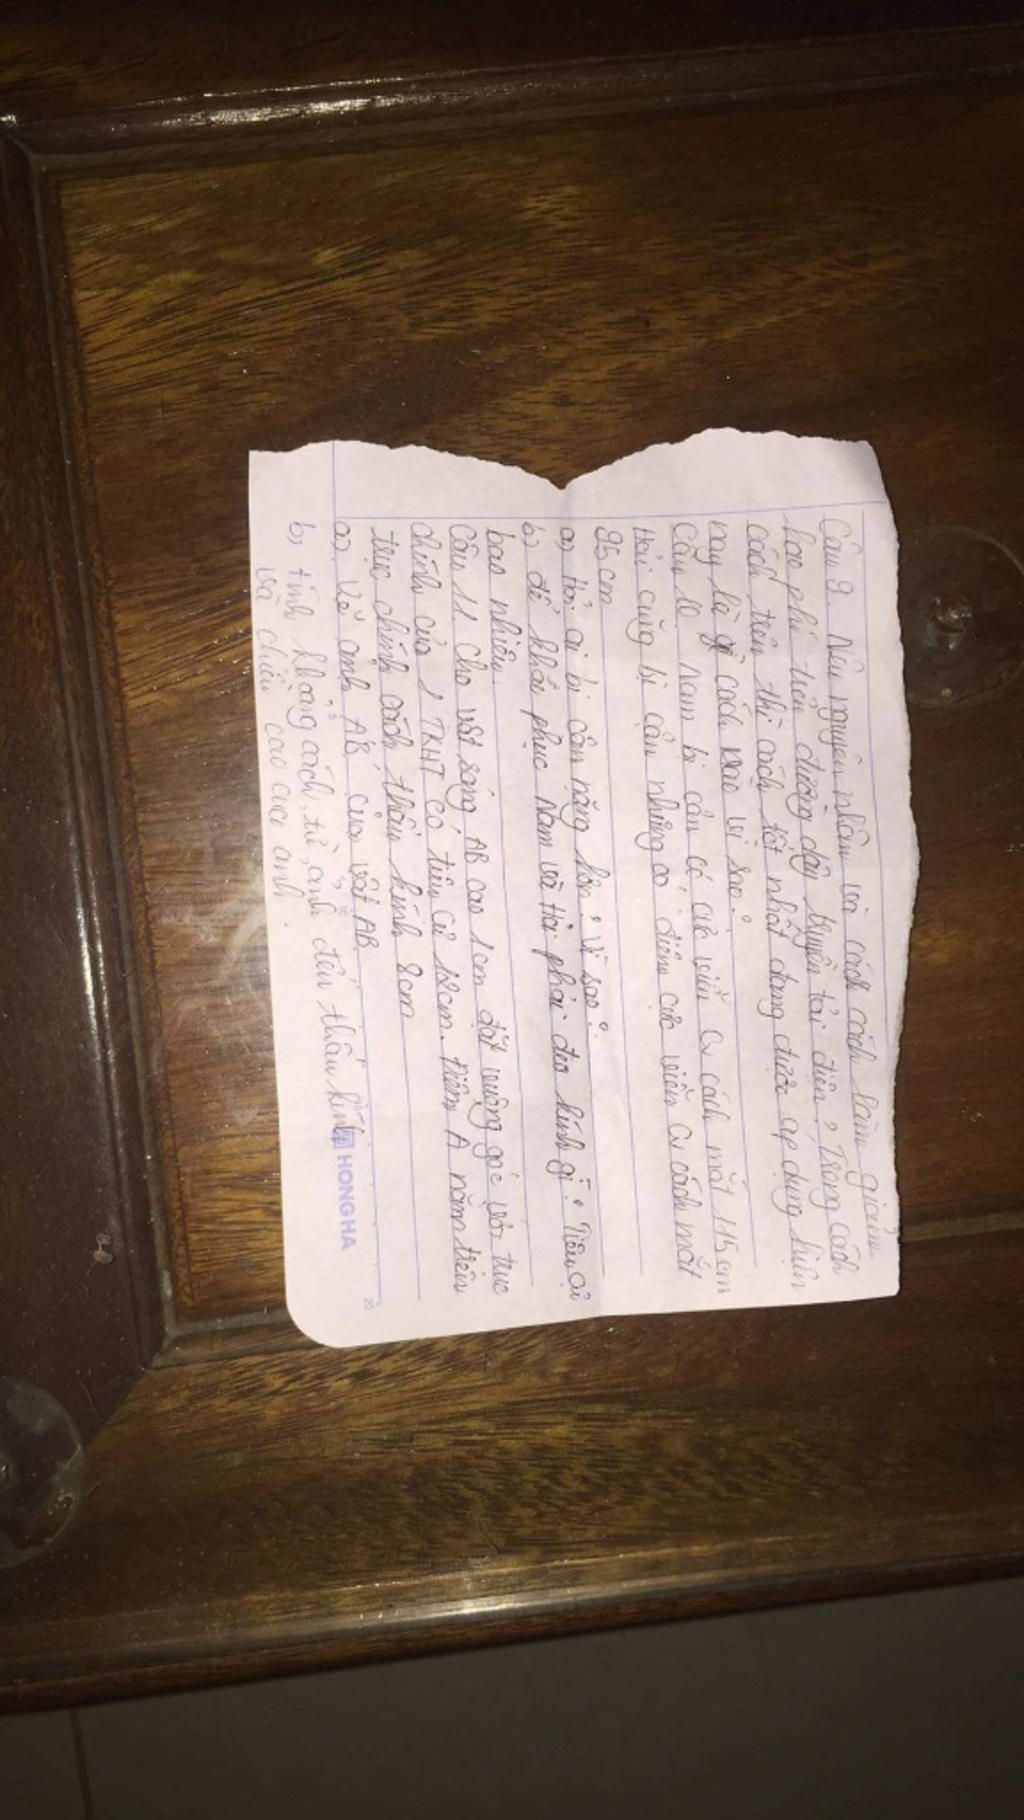 Câu 9. Nêu nguyên nhân và cách cách làm giảm
hao phí trên đường dây truyền tải điện? Trong cách
cách trên thì cách tốt nhất đang được áp dụng hiện
nay là cách nào vì sao?
Câu 10 Nam bị cận có cực viễn Cv cách mắt 115cm
Hải cũng bị cận nhưng có điểm cực viễn Cv cách mắt
95cm
a) Hỏi ai bị cận nặng hơn? Vì sao?
b) để khắc phục Nam và Hải phải đeo kính gì? Tiêu cự
bao nhiêu.
Câu 11. Cho vật sáng AB cao 1cm đặt vuông góc với trục
chính của 1 TKHT có tiêu cự 12cm. Điểm A nằm trên
trục chính cách thấu kính 8cm
a) Vẽ ảnh A'B' của vật AB
b) tính khoảng cách từ ảnh đến thấu kính
và chiều cao của ảnh.
HONG HA
20